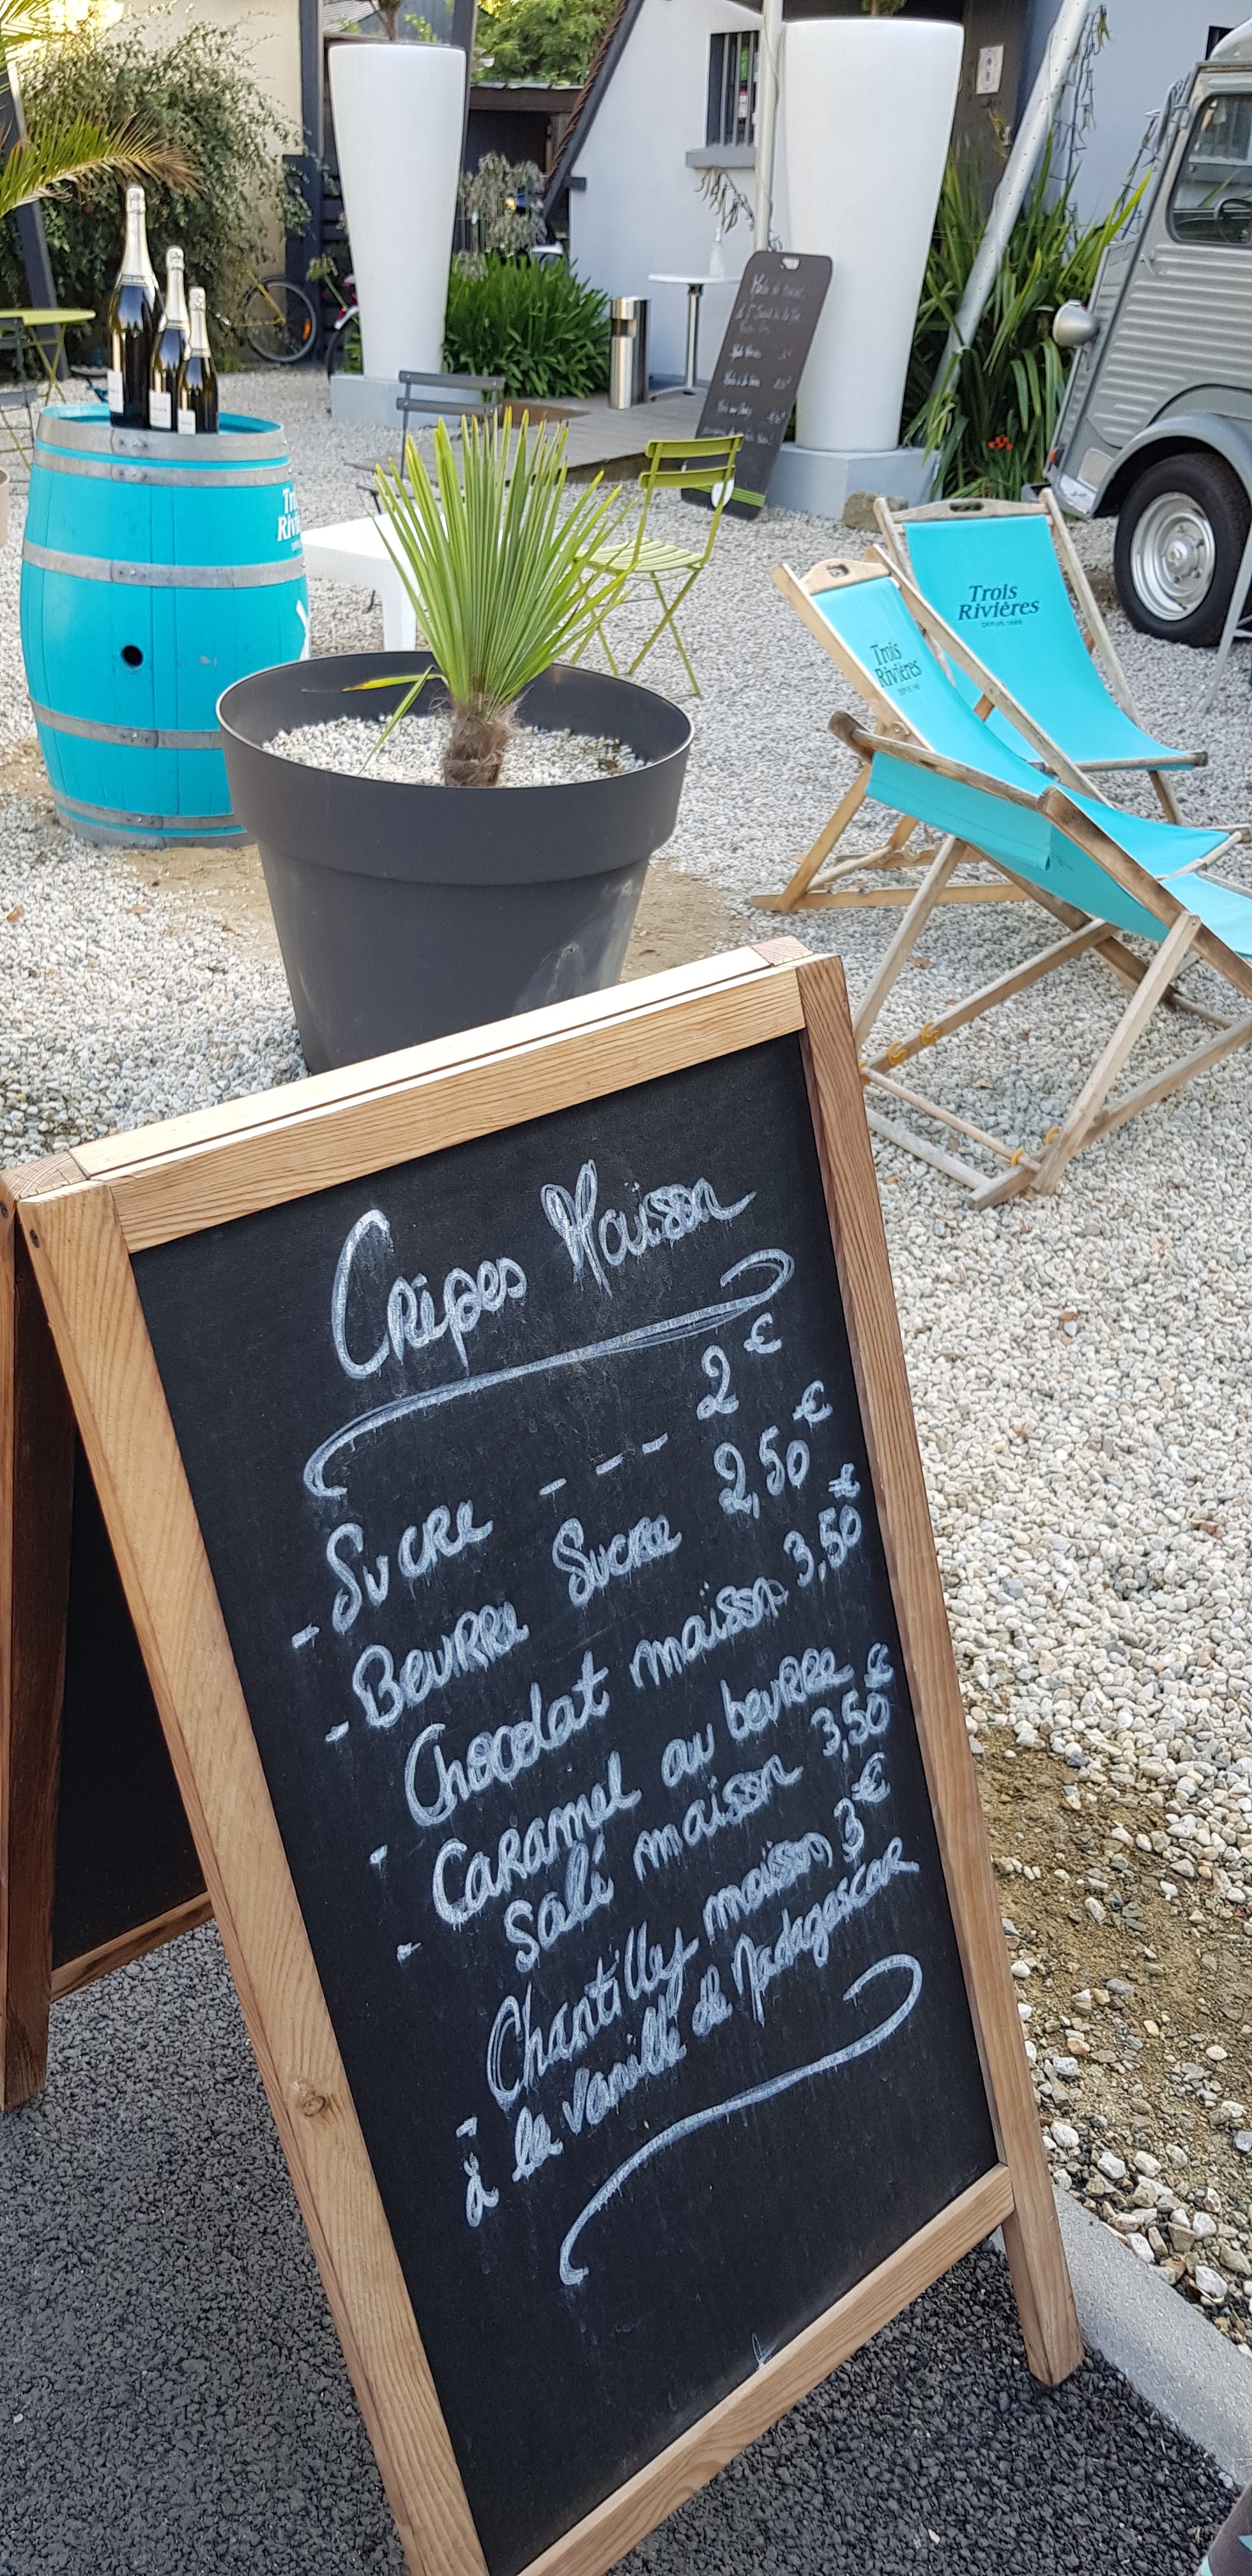 Trois
Rivières
DEPUIS 1660
Trois
Rivières
Crêpes Maison
- Sucre - - - 2 €
- Beurre Sucre 2,50 €
- Chocolat maison 3,50 €
- Caramel au beurre
salé maison 3,50 €
- Chantilly maison 3 €
à la vanille de Madagascar